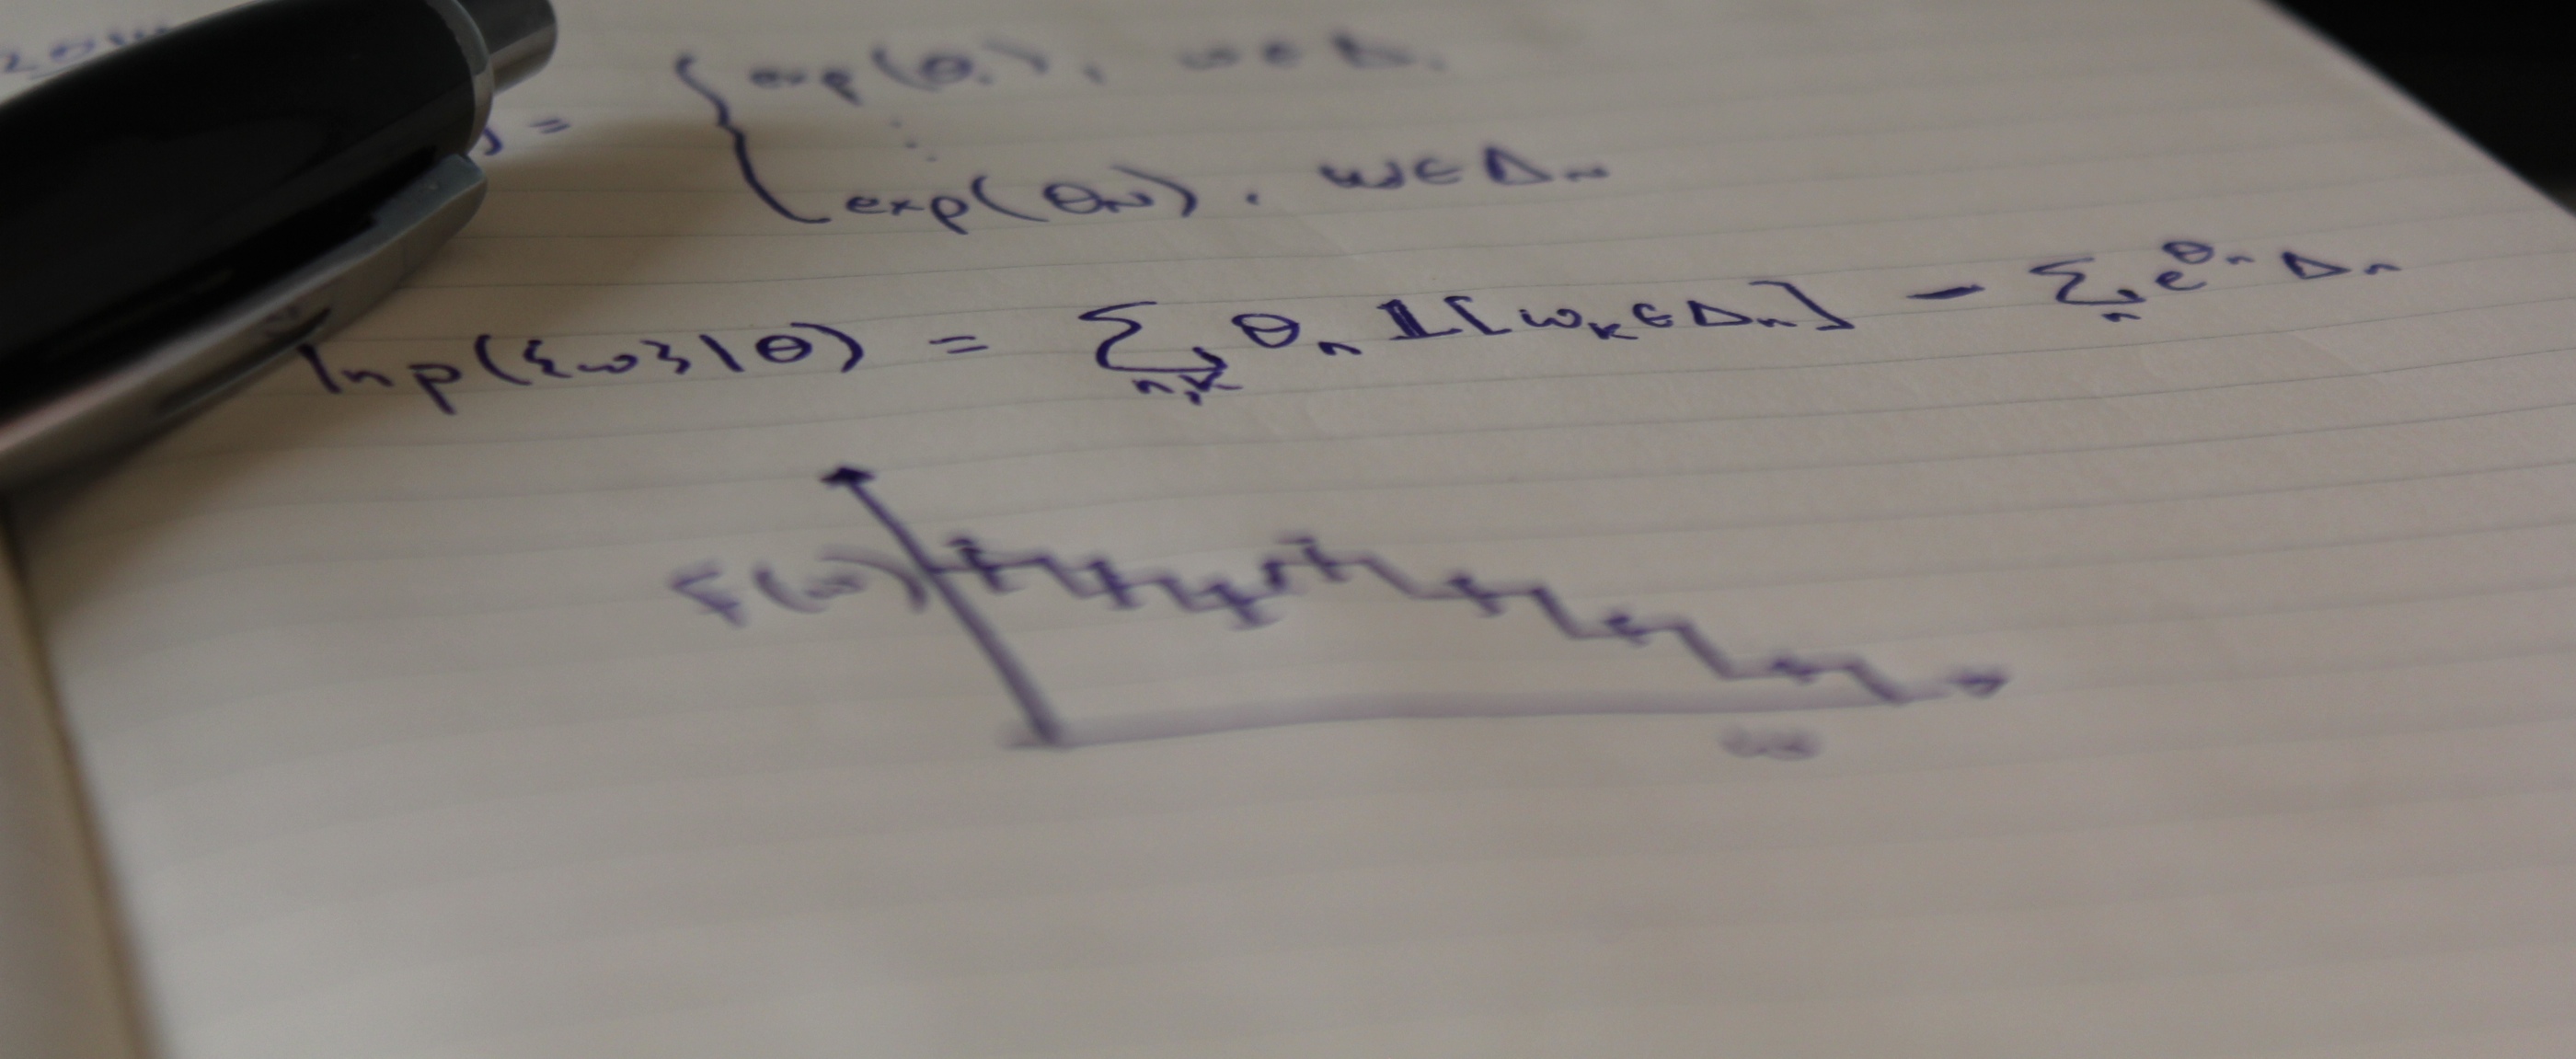 ) = { exp(θ₁), ω ∈ Δ₁
⋮
exp(θ_N), ω ∈ Δ_N
ln p({ω}|θ) = Σ_{n,k} θ_n 𝟙[ω_k ∈ Δ_n] − Σ_n e^{θ_n} Δ_n
f(ω)
ω